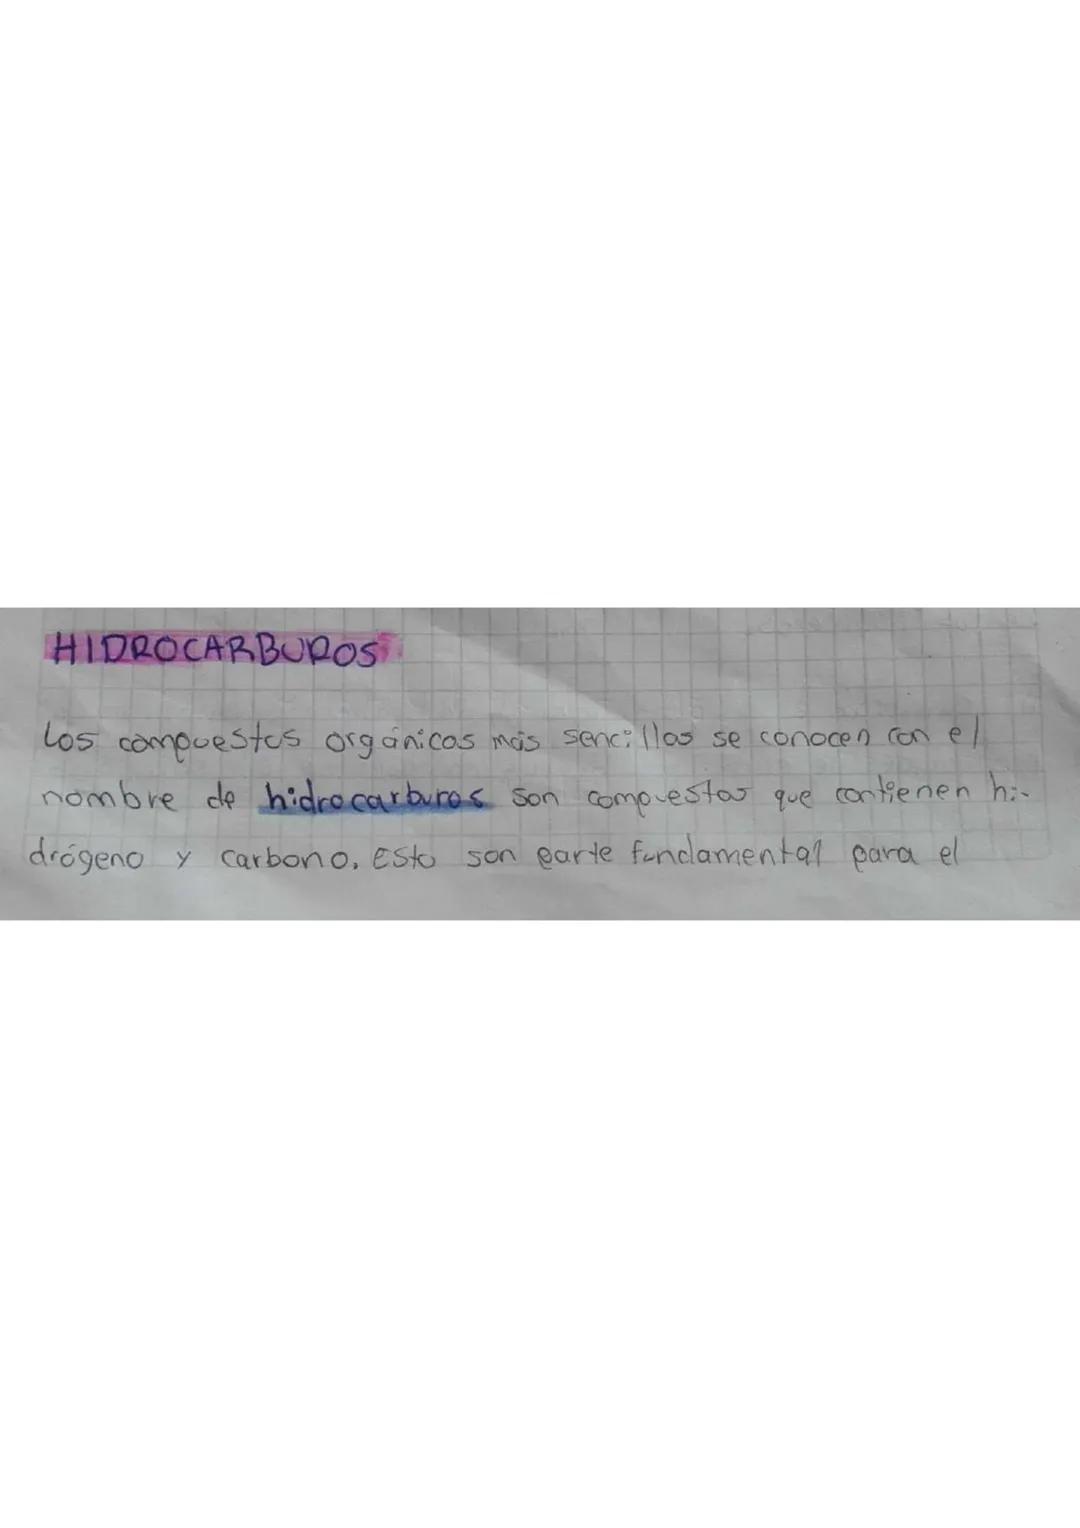 HIDROCARBUROS
Los compuestos orgánicos más sencillos se conocen con el
nombre de hidrocarburos son compuestos que contienen hi-
drógeno y carbono. Esto son parte fundamental para el